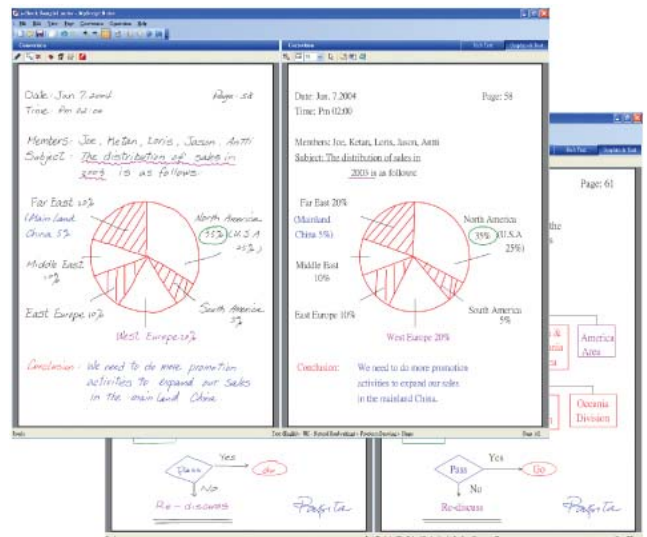 File Edit View Page
Conversion
Conversion
Date: Jan 7. 2004
Page: 58
Time: Pm 02:00
Members: Joe, Ketan, Loris, Jason, Antti
Subject: The distribution of sales in
2003 is as follows:
Far East 20%
(Mainland
China 5%
North America
35% (U.S.A
25%)
Middle East
10%
East Europe 10%
South America
5%
West Europe 20%
Conclusion: We need to do more promotion
activities to expand our sales
in the mainland China.
Date: Jan. 7.2004
Page: 58
Time: Pm 02:00
Members: Joe, Ketan, Loris, Jason, Antti
Subject: The distribution of sales in
2003 is as follows:
Far East 20%
(Mainland
China 5%)
North America
35% (U.S.A
25%)
Middle East
10%
East Europe 10%
South America
5%
West Europe 20%
Conclusion: We need to do more promotion
activities to expand our sales
in the mainland China.
Page: 61
the
&
America
Area
Oceania
Division
Pass
Yes
Go
No
Re-discuss
Pass
Yes
Go
No
Re-discuss